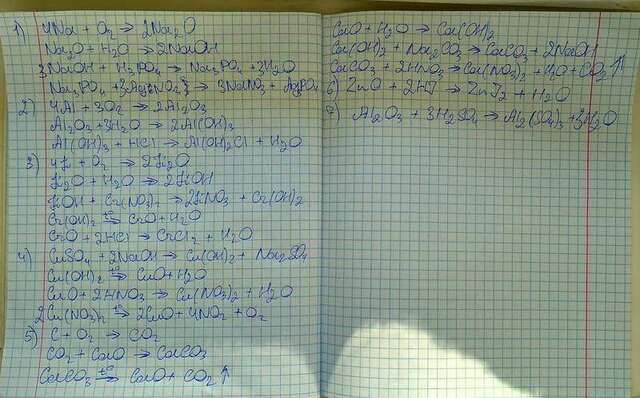 1) 4Na + O₂ → 2Na₂O
Na₂O + H₂O → 2NaOH
3NaOH + H₃PO₄ → Na₃PO₄ + 3H₂O
Na₃PO₄ + 3AgNO₃ → 3NaNO₃ + Ag₃PO₄
2) 4Al + 3O₂ → 2Al₂O₃
Al₂O₃ + 3H₂O → 2Al(OH)₃
Al(OH)₃ + HCl → Al(OH)₂Cl + H₂O
3) 4K + O₂ → 2K₂O
K₂O + H₂O → 2KOH
KOH + Cr(NO₃)₂ → 2KNO₃ + Cr(OH)₂
Cr(OH)₂ t°→ CrO + H₂O
CrO + 2HCl → CrCl₂ + H₂O
4) CuSO₄ + 2NaOH → Cu(OH)₂ + Na₂SO₄
Cu(OH)₂ t°→ CuO + H₂O
CuO + 2HNO₃ → Cu(NO₃)₂ + H₂O
2Cu(NO₃)₂ t°→ 2CuO + 4NO₂ + O₂
5) C + O₂ → CO₂
CO₂ + CaO → CaCO₃
CaCO₃ t°→ CaO + CO₂↑
CaO + H₂O → Ca(OH)₂
Ca(OH)₂ + Na₂CO₃ → CaCO₃ + 2NaOH
CaCO₃ + 2HNO₃ → Ca(NO₃)₂ + H₂O + CO₂↑
6) ZnO + 2HI → ZnI₂ + H₂O
7) Al₂O₃ + 3H₂SO₄ → Al₂(SO₄)₃ + 3H₂O